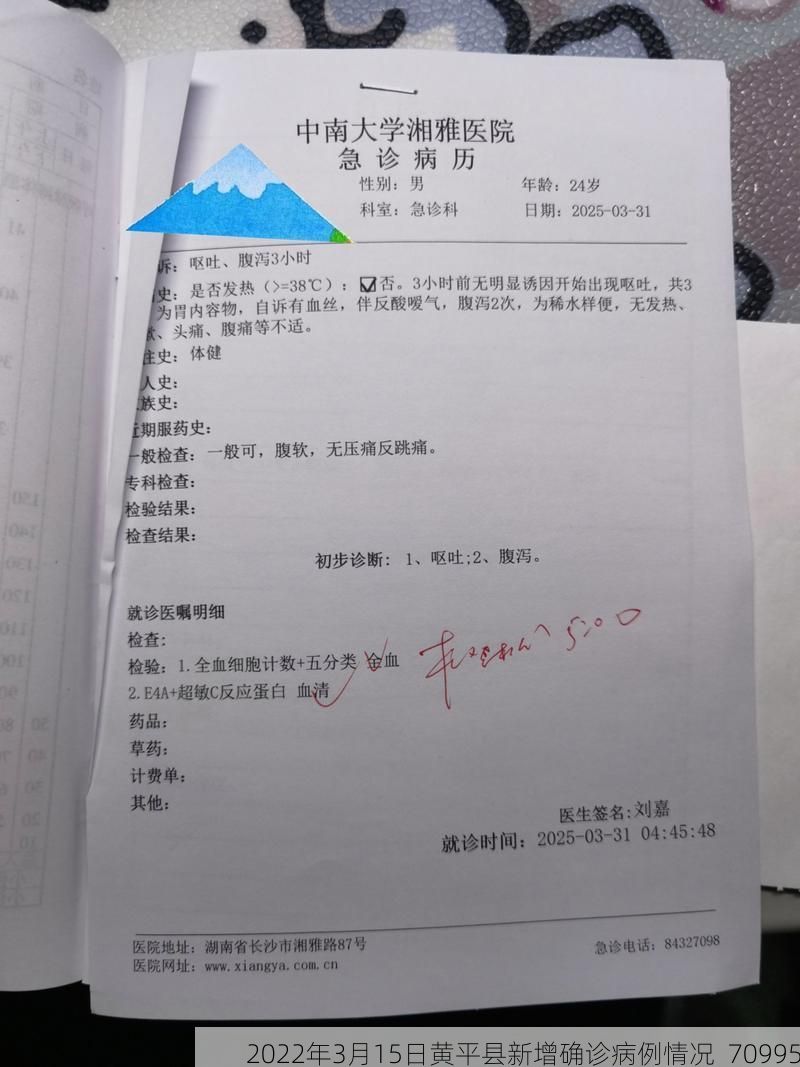 中南大学湘雅医院
急诊病历
性别：男 年龄：24岁
科室：急诊科 日期：2025-03-31
诉：呕吐、腹泻3小时
史：是否发热（>=38℃）：☑否。3小时前无明显诱因开始出现呕吐，共3
为胃内容物，自诉有血丝，伴反酸嗳气，腹泻2次，为稀水样便，无发热、
、头痛、腹痛等不适。
往史：体健
人史：
族史：
近期服药史：
一般检查：一般可，腹软，无压痛反跳痛。
专科检查：
检验结果：
检查结果：
初步诊断：1、呕吐;2、腹泻。
就诊医嘱明细
检查：
检验：1.全血细胞计数+五分类 全血
2.E4A+超敏C反应蛋白 血清
5:00
药品：
草药：
计费单：
其他：
医生签名:刘嘉
就诊时间：2025-03-31 04:45:48
医院地址：湖南省长沙市湘雅路87号 急诊电话：84327098
医院网址：www.xiangya.com.cn
2022年3月15日黄平县新增确诊病例情况 70995